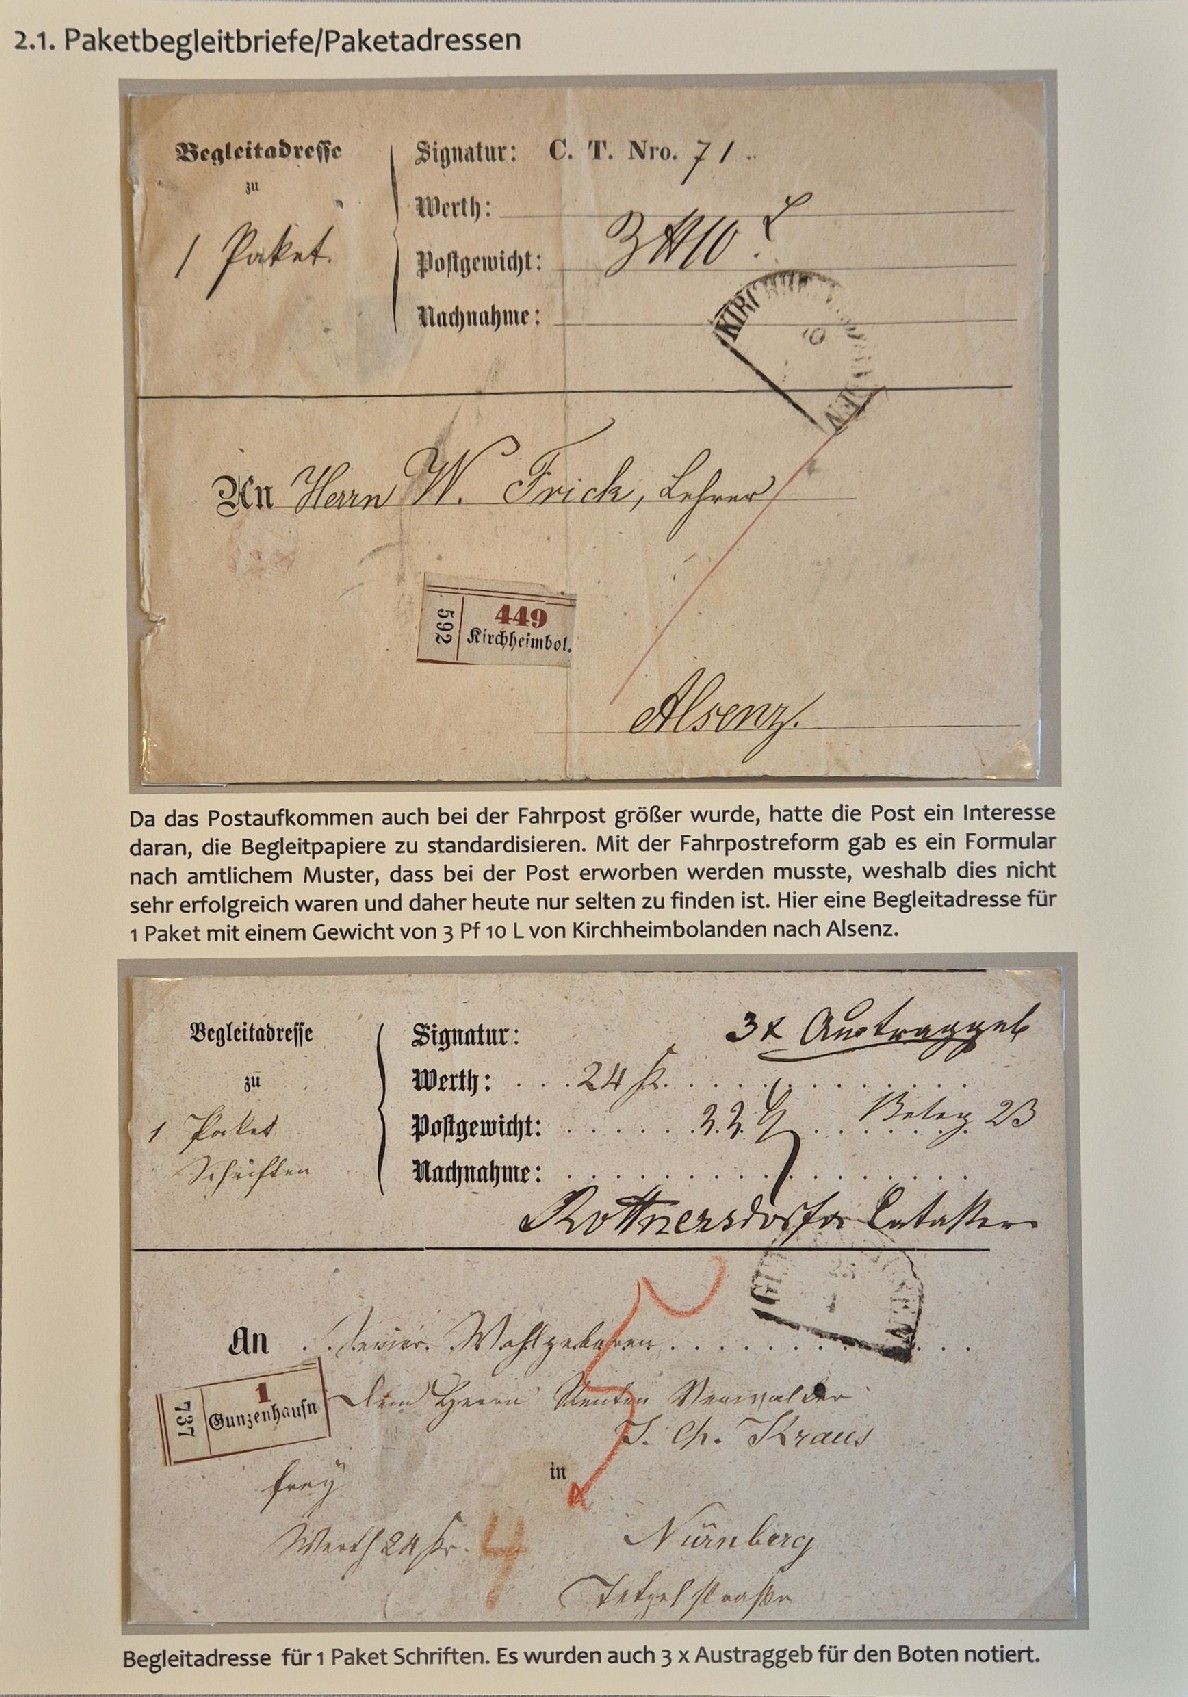 2.1. Paketbegleitbriefe/Paketadressen
Begleitadresse
zu
1 Paket.
Signatur: C. T. Nro. 71
Werth:
Postgewicht: 3 ₶ 10 L
Nachnahme:
KIRCHHEIMBOLANDEN
10
An Herrn W. Frick, Lehrer
592
449
Kirchheimbol.
Alsenz.
Da das Postaufkommen auch bei der Fahrpost größer wurde, hatte die Post ein Interesse
daran, die Begleitpapiere zu standardisieren. Mit der Fahrpostreform gab es ein Formular
nach amtlichem Muster, dass bei der Post erworben werden musste, weshalb dies nicht
sehr erfolgreich waren und daher heute nur selten zu finden ist. Hier eine Begleitadresse für
1 Paket mit einem Gewicht von 3 Pf 10 L von Kirchheimbolanden nach Alsenz.
Begleitadresse
zu
1 Paket
Schriften
3x Austraggeb
Signatur:
Werth: 24 kr.
Postgewicht:
Beleg 23
Nachnahme:
GUNZENHAUSEN
25
1
An Seiner Wohlgeboren
dem Herrn Renten Verwalder
J. Ch. Kraus
737
1
Gunzenhausn
in
frey
Werth 24 kr.
4
Nürnberg
Tetzelstraße
Begleitadresse für 1 Paket Schriften. Es wurden auch 3 x Austraggeb für den Boten notiert.